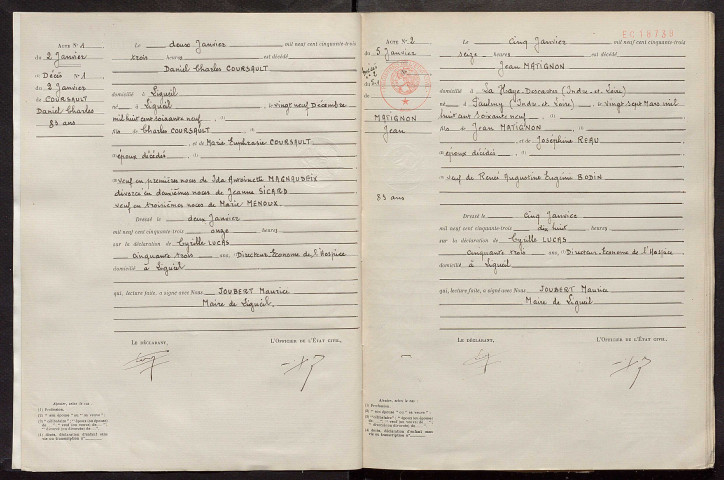 Acte N° 1
du 2 Janvier
Décès N° 1
du 2 Janvier
de COURSAULT
Daniel Charles
83 ans
Le deux Janvier mil neuf cent cinquante-trois
trois heures est décédé
Daniel Charles COURSAULT
domicilié à Ligueil
né à Ligueil le vingt neuf Décembre
mil huit cent soixante neuf (1)
fils de Charles COURSAULT (1)
et de Marie Euphrasie COURSAULT
époux décédés (1)
veuf en premières noces de Ida Antoinette MAGNAUDEIX
divorcé en deuxièmes noces de Jeanne SICARD
veuf en troisièmes noces de Marie MENOUX
Dressé le deux Janvier
mil neuf cent cinquante-trois onze heures
sur la déclaration de Cyrille LUCAS
cinquante trois ans, Directeur-Econome de l'Hospice
domicilié à Ligueil
qui, lecture faite, a signé avec Nous JOUBERT Maurice
Maire de Ligueil.
Le Déclarant, L'Officier de l'État Civil,
Ajouter, selon le cas :
(1) Profession.
Acte N° 2
du 5 Janvier
MATIGNON
Jean
83 ans
EC18739
Le cinq Janvier mil neuf cent cinquante-trois
seize heures est décédé
Jean MATIGNON
domicilié à La Haye-Descartes (Indre et Loire)
né à Paulmy (Indre et Loire) le vingt sept Mars mil
huit cent soixante neuf (1)
fils de Jean MATIGNON (1)
et de Joséphine REAU
époux décédés (1)
veuf de Renée Augustine Eugénie BODIN
Dressé le cinq Janvier
mil neuf cent cinquante-trois dix huit heures
sur la déclaration de Cyrille LUCAS
cinquante trois ans, Directeur Econome de l'Hospice
domicilié à Ligueil
qui, lecture faite, a signé avec Nous JOUBERT Maurice
Maire de Ligueil
Le Déclarant, L'Officier de l'État Civil,
Ajouter, selon le cas :
(1) Profession.